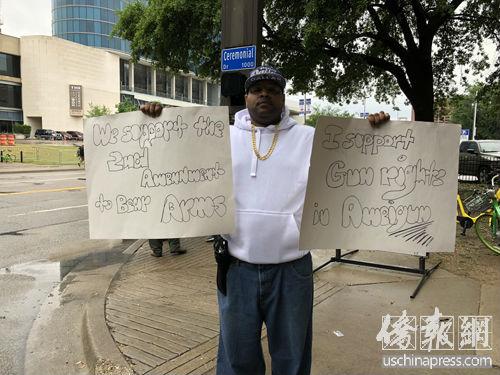 Ceremonial
Dr 1000
We support the
2nd
Amendment
to Bear
Arms
I support
Gun rights
in
僑報網
uschinapress.com